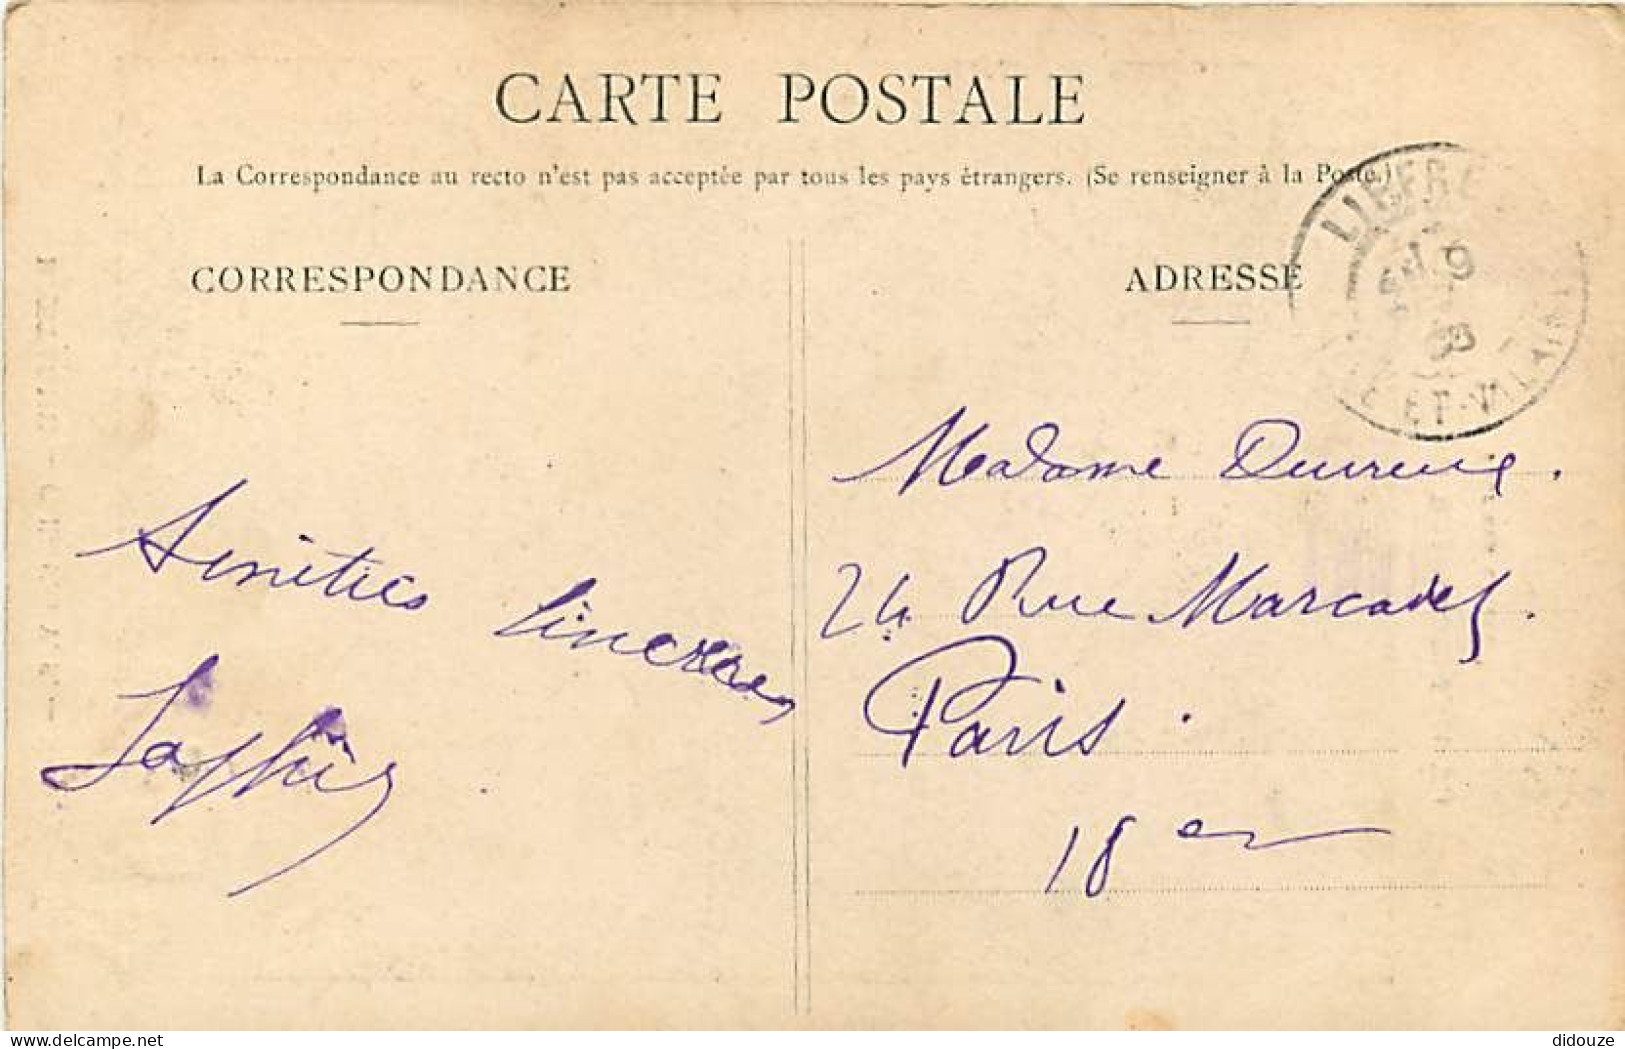 CARTE POSTALE
La Correspondance au recto n'est pas acceptée par tous les pays étrangers. (Se renseigner à la Poste.)
CORRESPONDANCE
ADRESSE
LIFFRÉ
9
ET-VILAINE
Amitiés sincères
Madame
24 Rue Marcadet.
Paris.
18er
delcampe.net
didouze